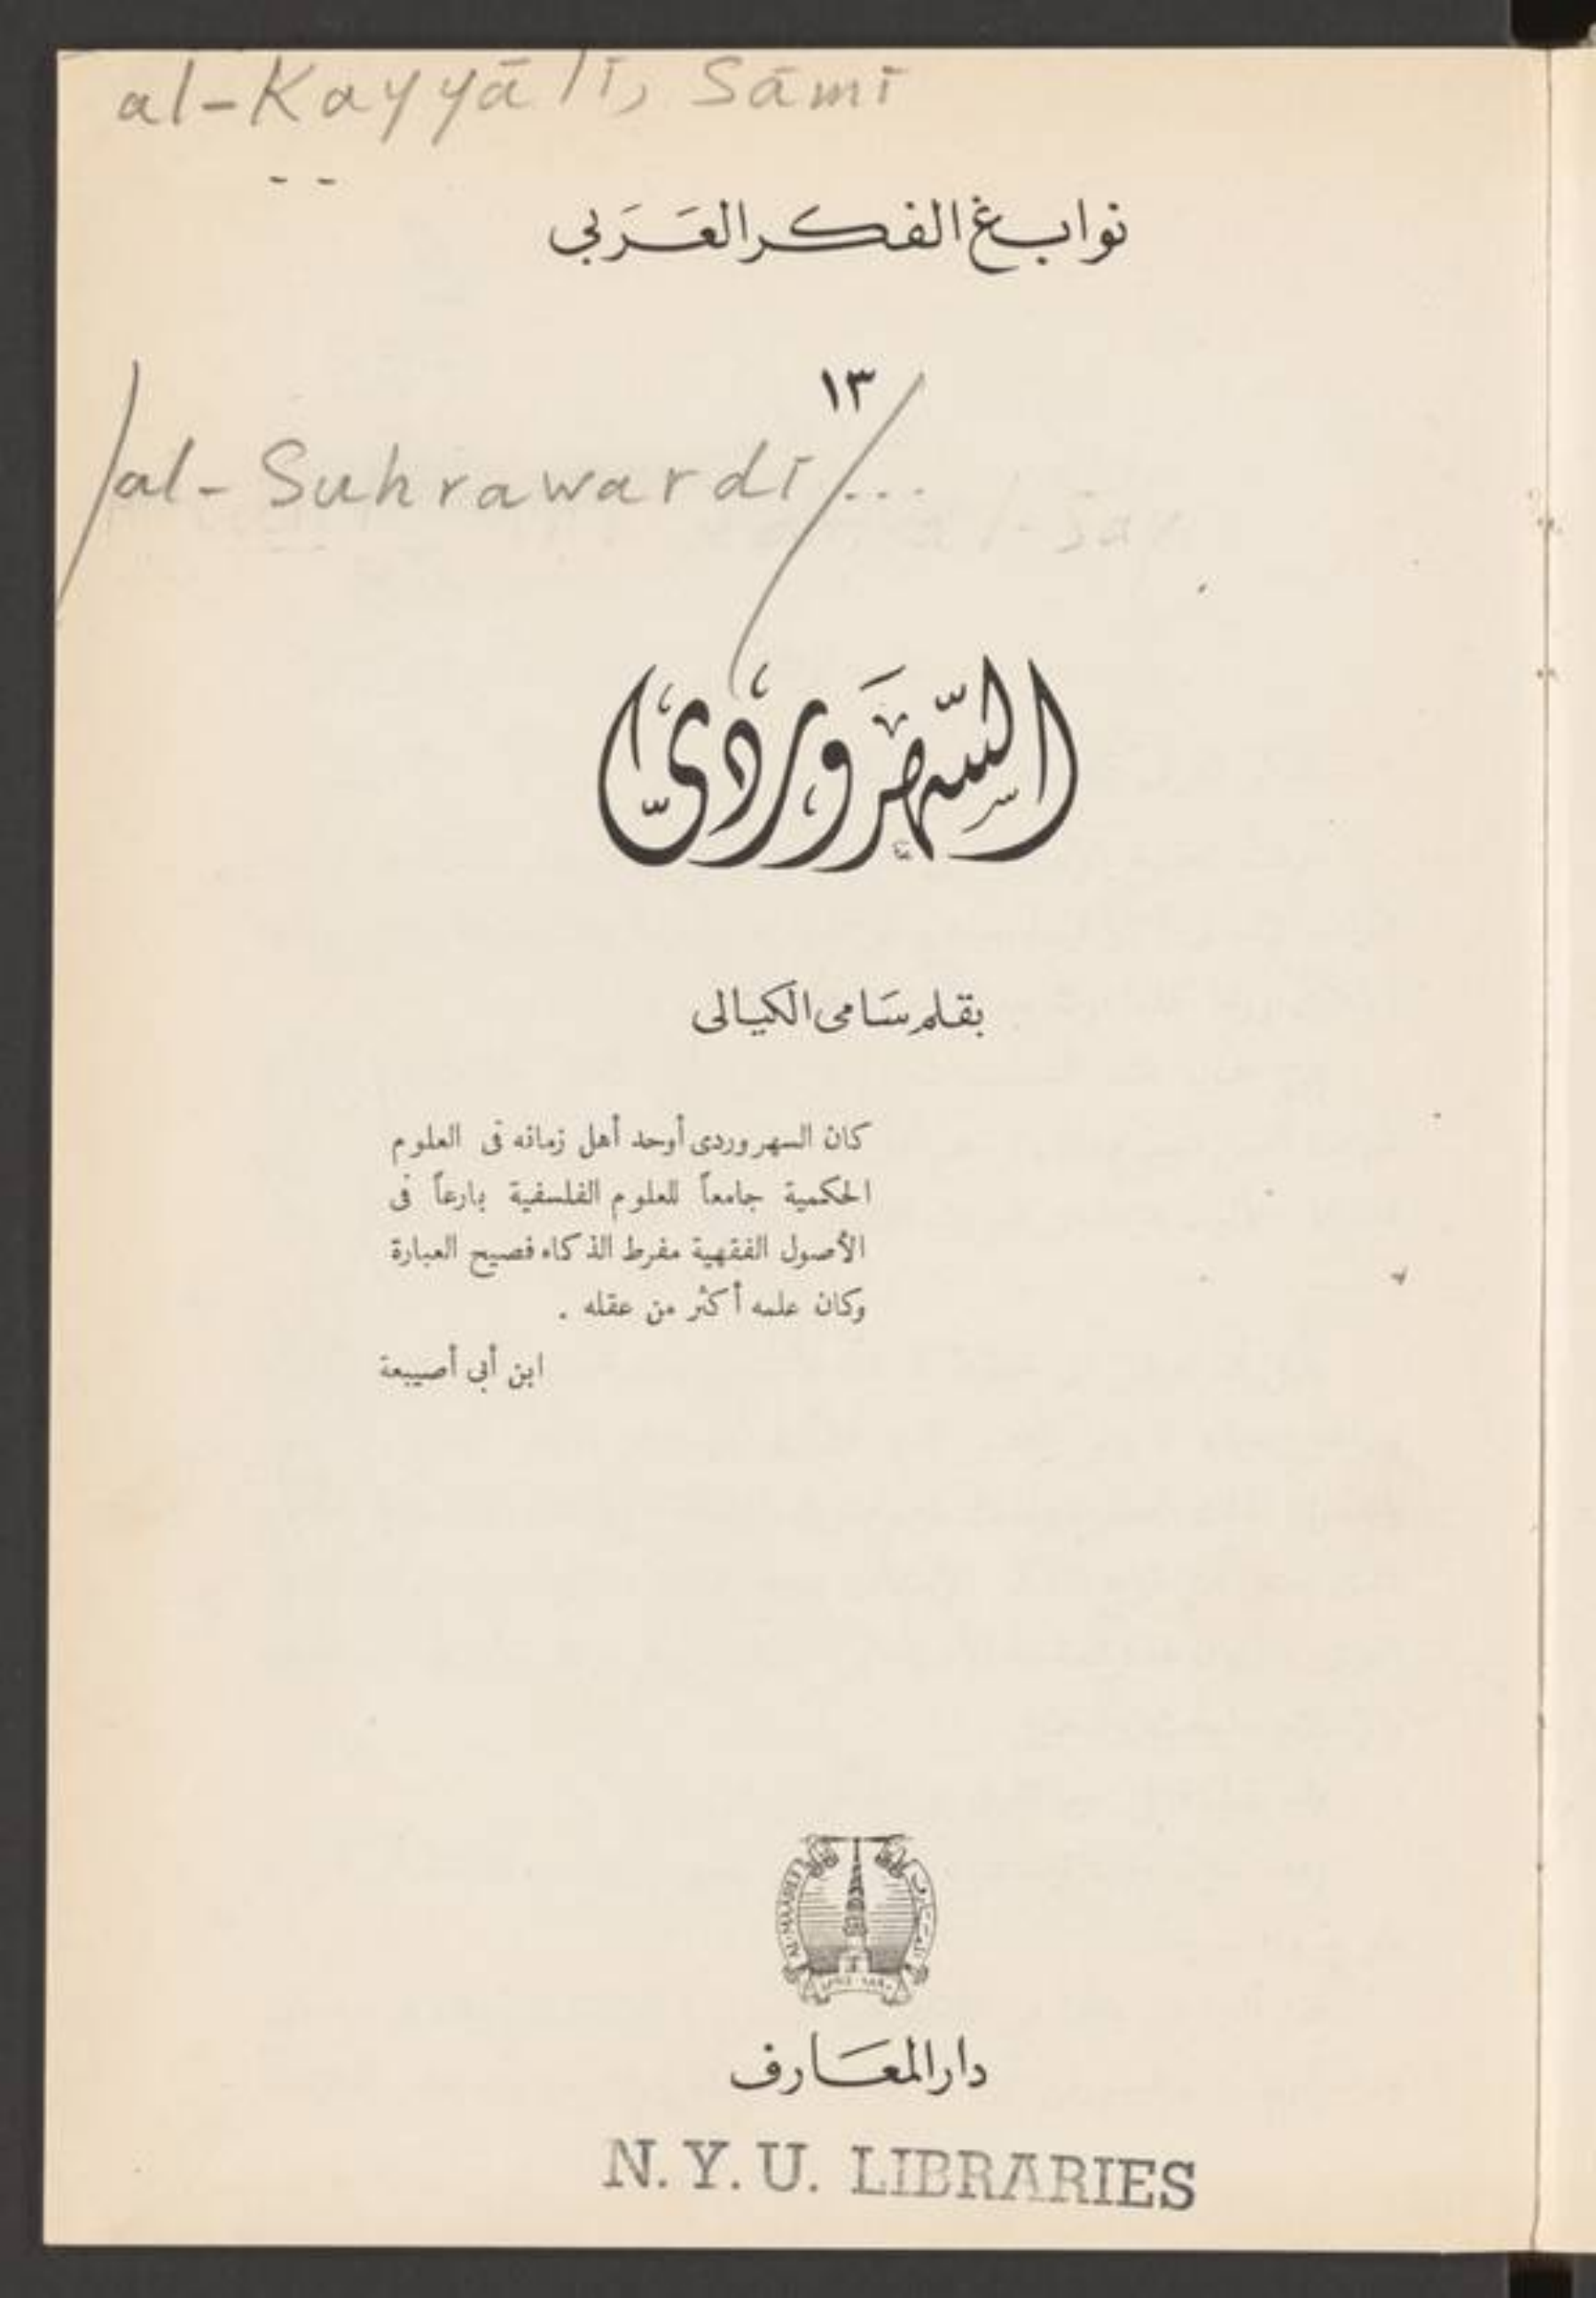 al-Kayyālī, Sāmī
نوابغ الفكر العَرَبي
١٣
/al-Suhrawardī/...
السّهرَوردىّ
بقلم سَامى الكيالى
كان السهروردى أوحد أهل زمانه فى العلوم
الحكمية جامعاً للعلوم الفلسفية بارعاً فى
الأصول الفقهية مفرط الذكاء فصيح العبارة
وكان علمه أكثر من عقله .
ابن أبي أصيبعة
AL-MAAREF
المعارف
١٨٩٠
دار المعَارف
N. Y. U. LIBRARIES